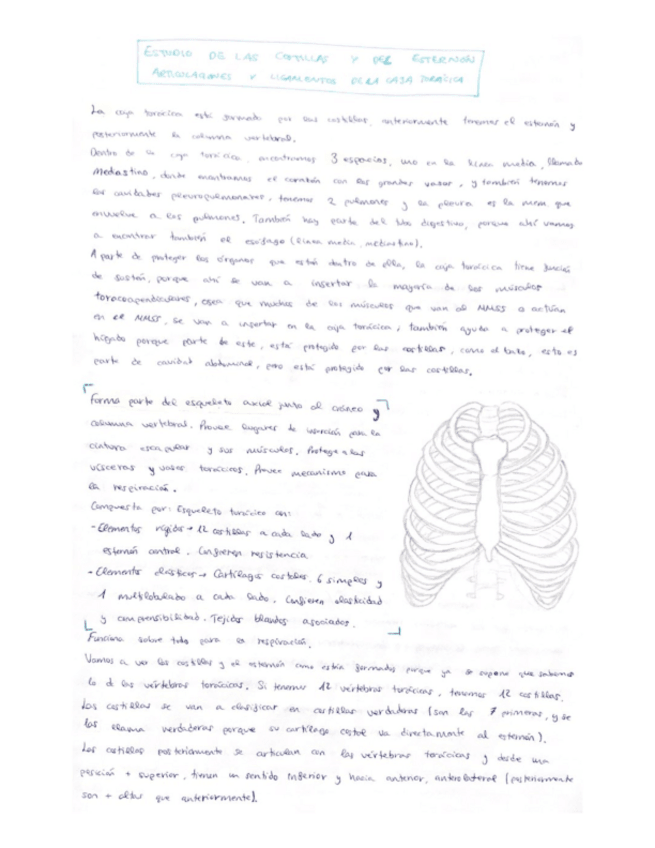 ESTUDIO DE LAS COSTILLAS Y DEL ESTERNÓN
ARTICULACIONES Y LIGAMENTOS DE LA CAJA TORÁCICA
La caja torácica está formada por las costillas, anteriormente tenemos el esternón y
posteriormente la columna vertebral.
Dentro de la caja torácica, encontramos 3 espacios, uno en la línea media, llamado
Mediastino, donde encontramos el corazón con los grandes vasos, y también tenemos
las cavidades pleuropulmonares, tenemos 2 pulmones y la pleura es la mem que
envuelve a los pulmones. También hay parte del tubo digestivo, porque ahí vamos
a encontrar también el esófago (línea media, mediastino).
A parte de proteger los órganos que están dentro de ella, la caja torácica tiene función
de sostén, porque ahí se van a insertar la mayoría de los músculos
toracoapendiculares, osea que muchos de los músculos que van al MMSS o actúan
en el MMSS, se van a insertar en la caja torácica, también ayuda a proteger el
hígado porque parte de este, está protegido por las costillas, como el bazo, esto es
parte de cavidad abdominal, pero está protegido por las costillas.
Forma parte del esqueleto axial junto al cráneo y
columna vertebral. Provee lugares de inserción para la
cintura escapular y sus músculos. Protege a las
vísceras y vasos torácicos. Provee mecanismo para
la respiración.
Compuesta por: Esqueleto torácico con:
- Elementos rígidos → 12 costillas a cada lado y 1
esternón central. Confieren resistencia
- Elementos elásticos → Cartílagos costales. 6 simples y
1 multilobulado a cada lado. Confieren elasticidad
y compensibilidad. Tejidos blandos asociados.
Funciona sobre todo para la respiración.
Vamos a ver las costillas y el esternón como están formados porque ya se supone que sabemos
lo de las vértebras torácicas. Si tenemos 12 vértebras torácicas, tenemos 12 costillas.
Las costillas se van a clasificar en costillas verdaderas (son las 7 primeras, y se
las llama verdaderas porque su cartílago costal va directamente al esternón).
Las costillas posteriormente se articulan con las vértebras torácicas y desde una
posición + superior, tienen un sentido inferior y hacia anterior, anterolateral (posteriormente
son + altas que anteriormente).